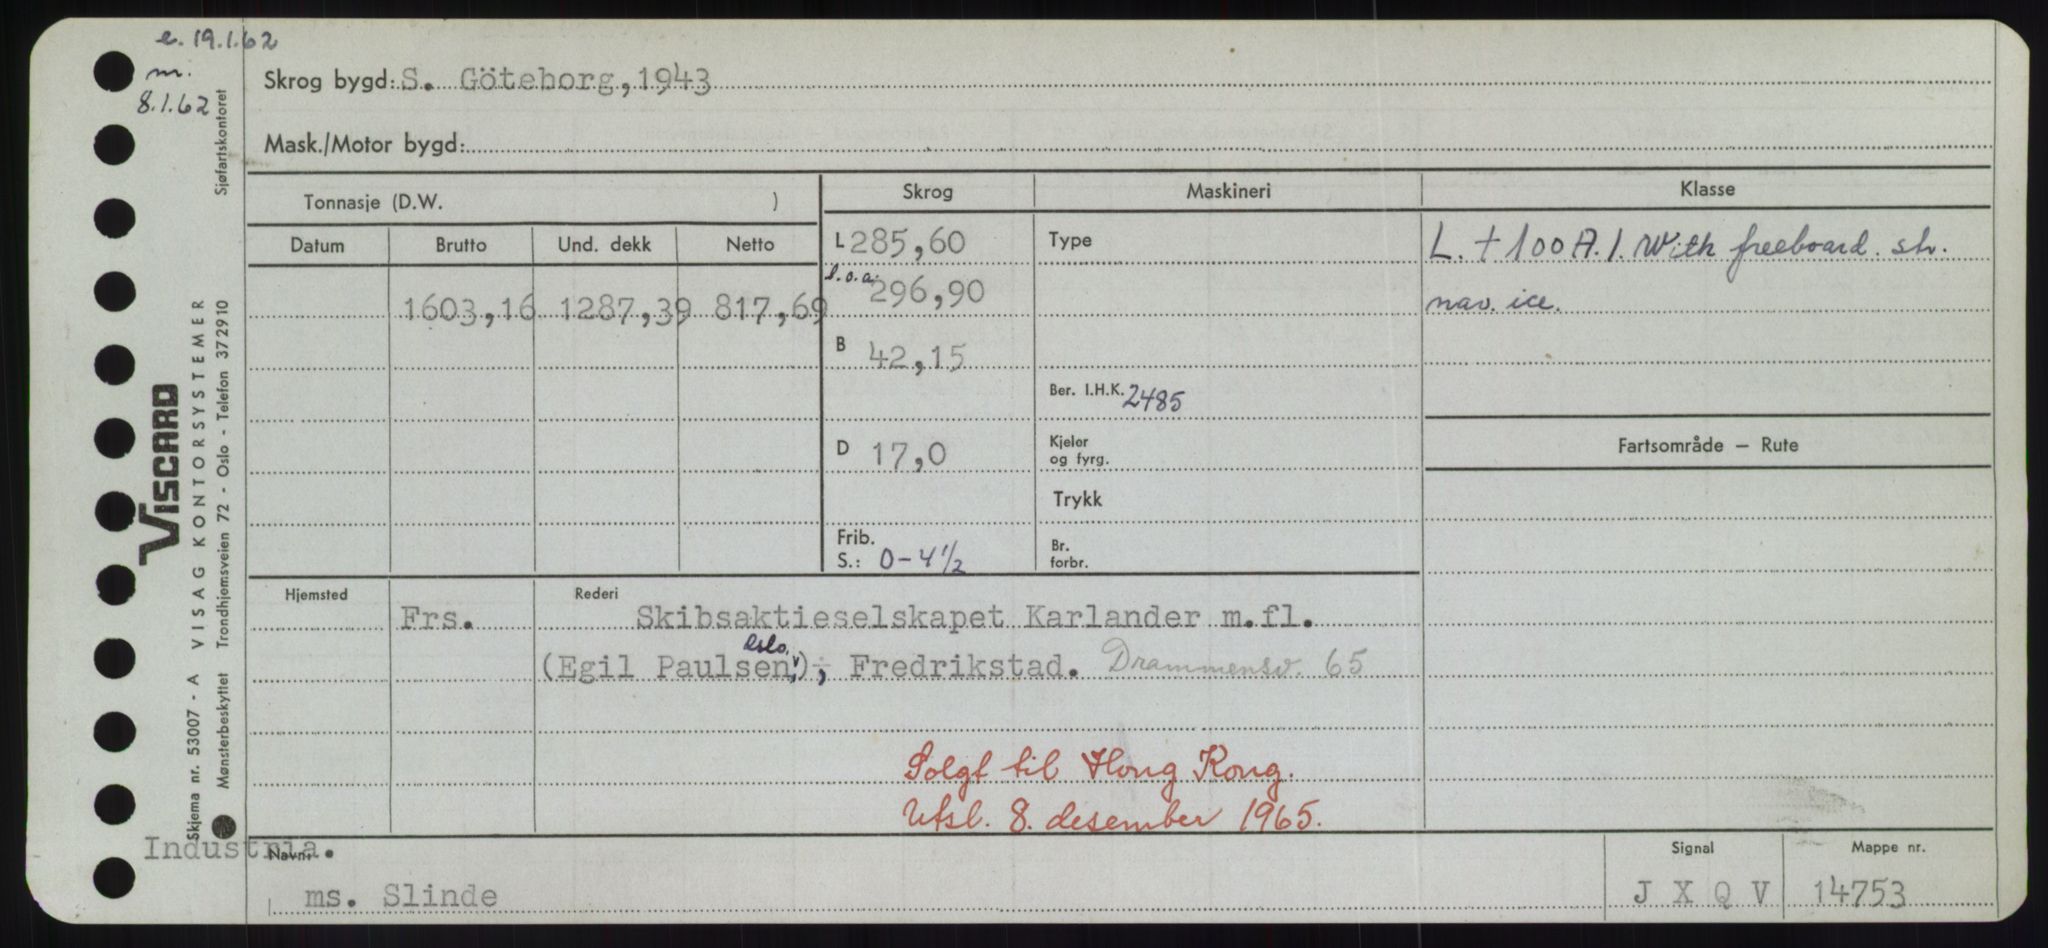 e. 19.1.62
m.
8.1.62
Skrog bygd: S. Göteborg, 1943
Mask./Motor bygd:
Tonnasje (D.W. )
Skrog
Maskineri
Klasse
Datum
Brutto
Und. dekk
Netto
L 285,60
Type
L. + 100 A.1. With freeboard. str.
l.o.a. 296,90
nav. ice.
1603,16 1287,39 817,69
B 42,15
Ber. I.H.K. 2485
Fartsområde — Rute
D 17,0
Kjeler
og fyrg.
Trykk
Frib.
S.: 0-4½
Br.
forbr.
Hjemsted
Frs.
Rederi
Skibsaktieselskapet Karlander m.fl.
Oslo
(Egil Paulsen,), Fredrikstad. Drammensv. 65
Solgt til Hong Kong.
Utsl. 8. desember 1965.
Industria.
Navn:
ms. Slinde
Signal
J X Q V
Mappe nr.
14753
VISCARD
Skjema nr. 53007 - A VISAG KONTORSYSTEMER
Mønsterbeskyttet Trondhjemsveien 72 - Oslo - Telefon 372910
Sjøfartskontoret